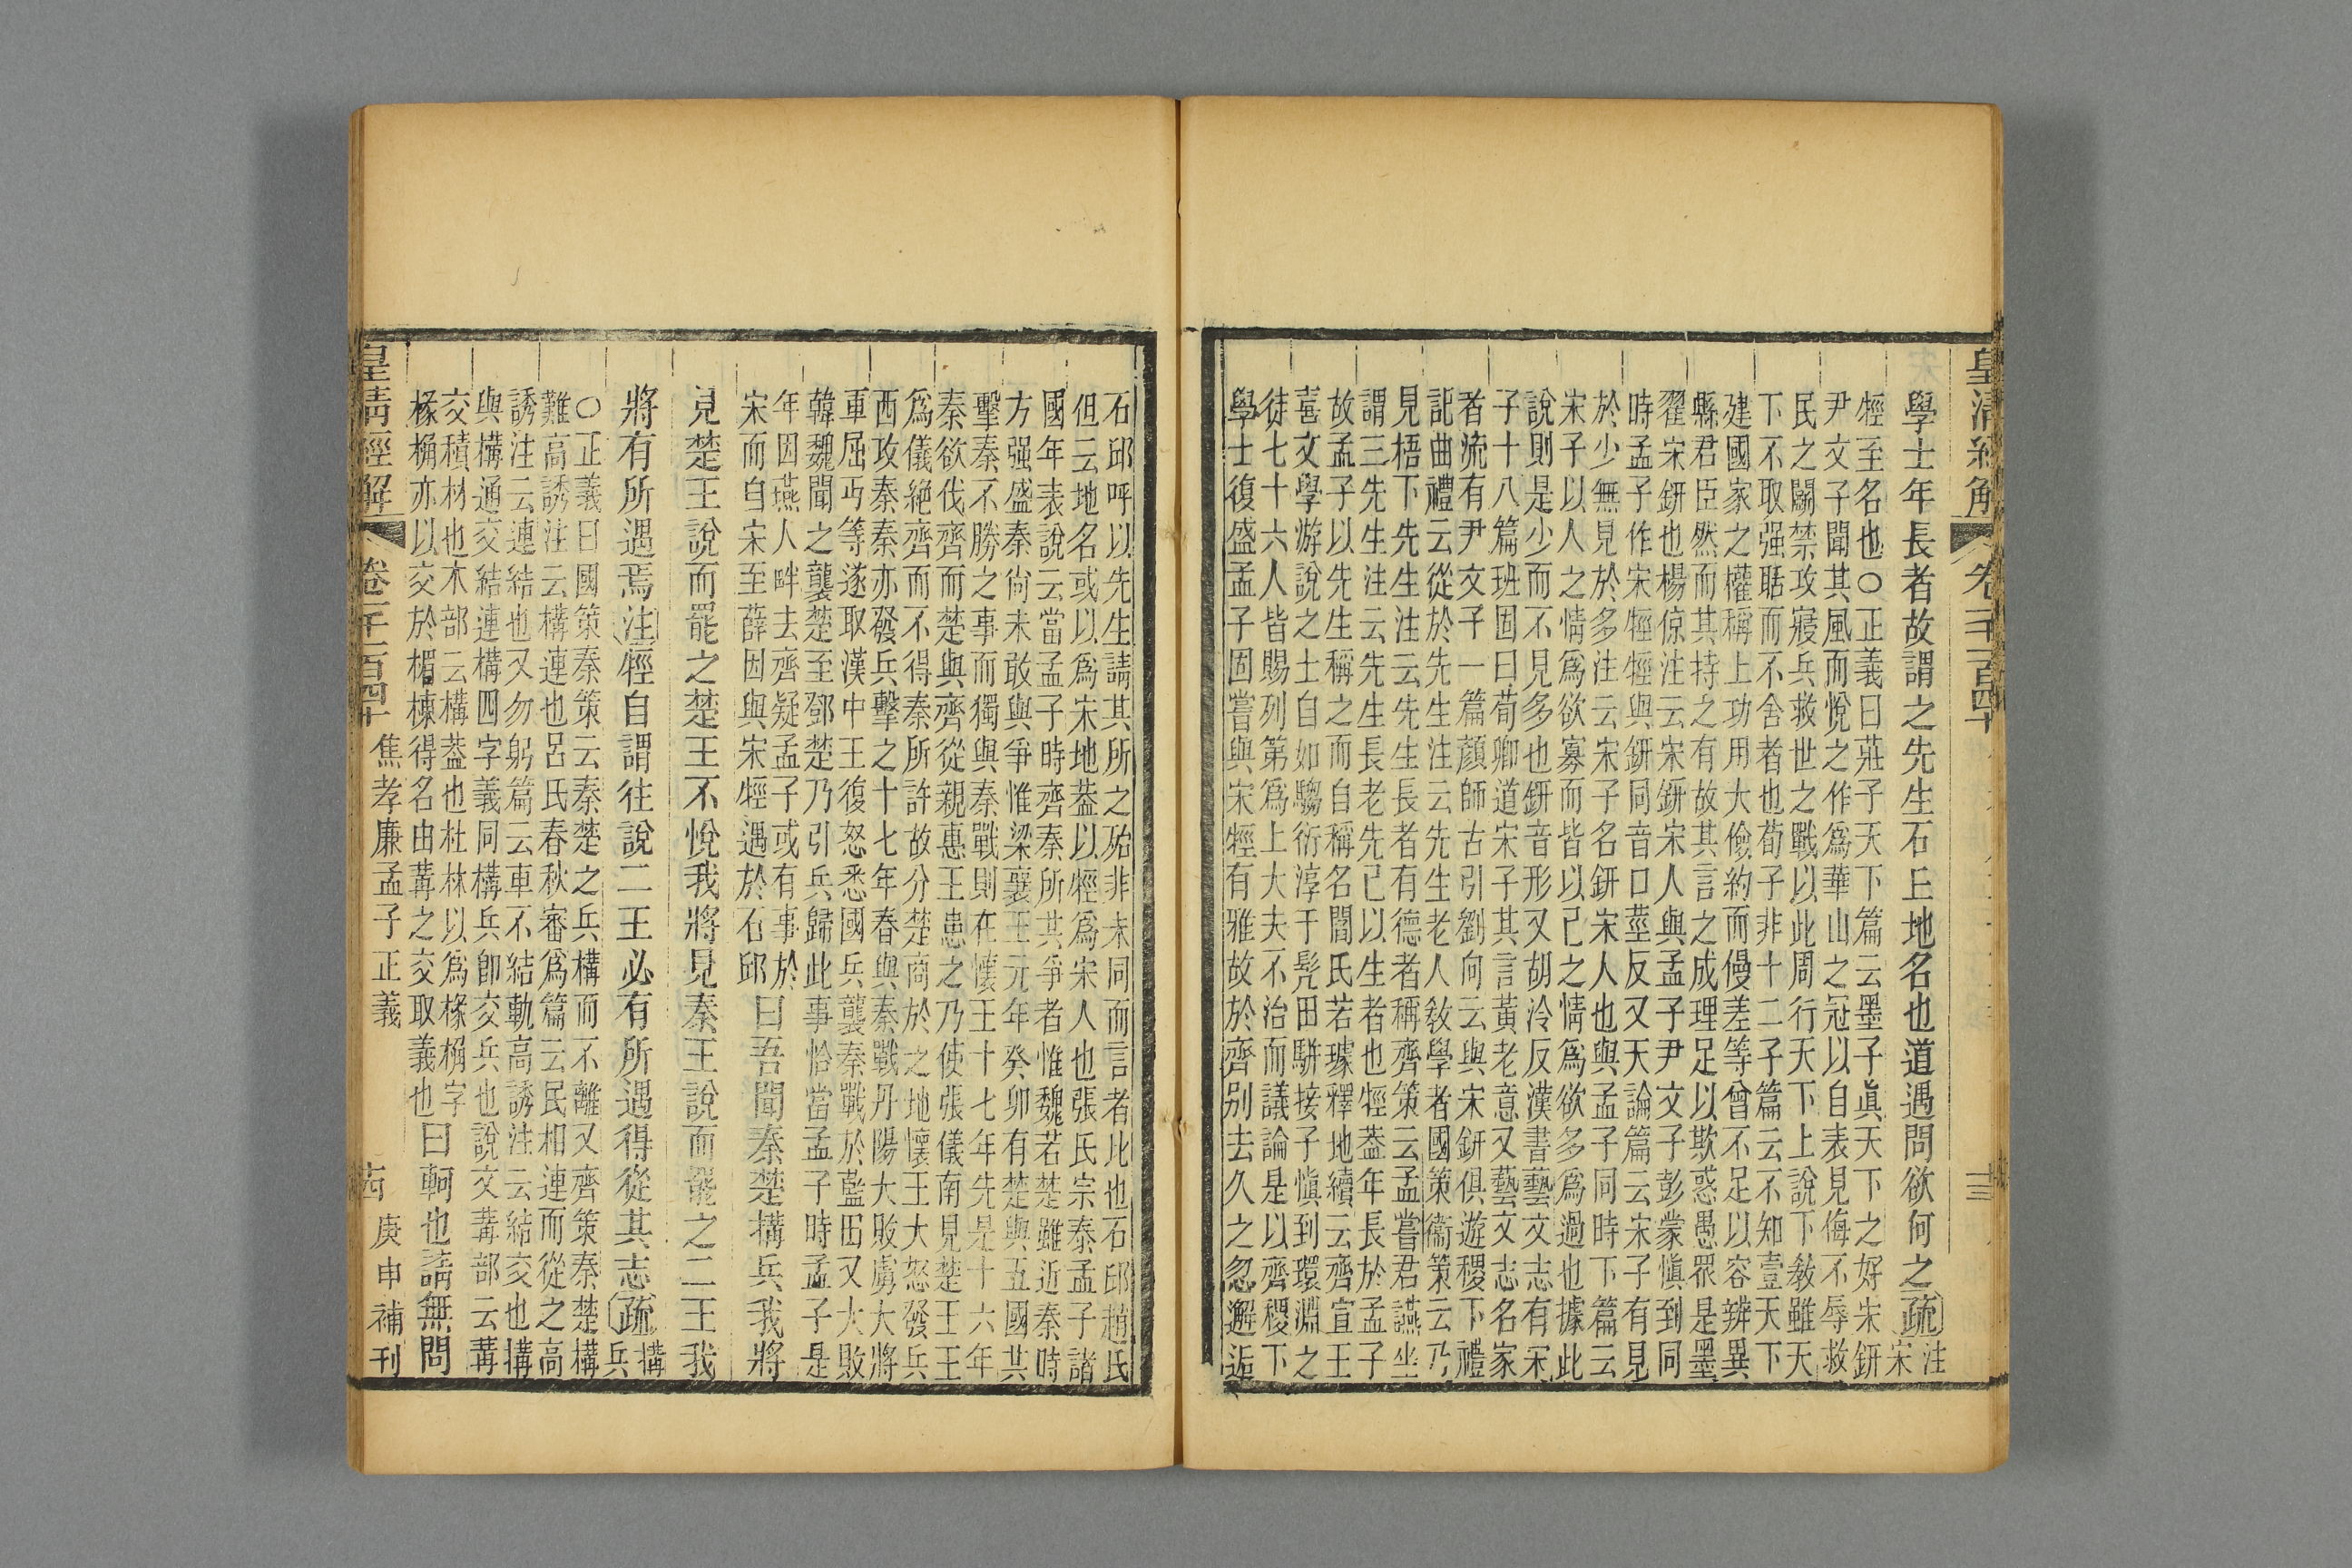 皇清經解 卷一千一百四十 十三
學士年長者故謂之先生石丘地名也道遇問欲何之疏注宋
牼至名也○正義曰莊子天下篇云墨子真天下之好宋鈃
尹文子聞其風而悅之作爲華山之冠以自表見侮不辱救
民之鬭禁攻寢兵救世之戰以此周行天下上說下敎雖天
下不取强聒而不舍者也荀子非十二子篇云不知壹天下
建國家之權稱上功用大儉約而僈差等曾不足以容辨異
縣君臣然而其持之有故其言之成理足以欺惑愚眾是墨
翟宋鈃也楊倞注云宋鈃宋人與孟子尹文子彭蒙愼到同
時孟子作宋牼牼與鈃同音口莖反又天論篇云宋子有見
於少無見於多注云宋子名鈃宋人也與孟子同時下篇云
宋子以人之情爲欲寡而皆以己之情爲欲多爲過也據此
說則是少而不見多也鈃音形又胡泠反漢書藝文志有宋
子十八篇班固曰荀卿道宋子其言黃老意又藝文志名家
者流有尹文子一篇顏師古引劉向云與宋鈃俱遊稷下禮
記曲禮云從於先生注云先生老人敎學者國策衞策云乃
見梧下先生注云先生長者有德者稱齊策云孟嘗君讌坐
謂三先生注云先生長老先已以生者也牼葢年長於孟子
故孟子以先生稱之而自稱名閻氏若璩釋地續云齊宣王
喜文學游說之士自如騶衍淳于髡田駢接子愼到環淵之
徒七十六人皆賜列第爲上大夫不治而議論是以齊稷下
學士復盛孟子固嘗與宋牼有雅故於齊别去久之忽邂逅
石邱呼以先生請其所之殆非未同而言者比也石邱趙氏
但云地名或以爲宋地葢以牼爲宋人也張氏宗泰孟子諸
國年表說云當孟子時齊秦所其爭者惟魏若楚雖近秦時
方强盛秦尚未敢與爭惟梁襄王元年癸卯有楚與五國共
擊秦不勝之事而獨與秦戰則在懷王十七年先是十六年
秦欲伐齊而楚與齊從親惠王患之乃使張儀南見楚王王
爲儀絕齊而不得秦所許故分楚商於之地懷王大怒發兵
西攻秦秦亦發兵擊之十七年春與秦戰丹陽大敗虜大將
軍屈丐等遂取漢中王復怒悉國兵襲秦戰於藍田又大敗
韓魏聞之襲楚至鄧楚乃引兵歸此事恰當孟子時孟子是
年因燕人畔去齊疑孟子或有事於
宋而自宋至薛因與宋牼遇於石邱曰吾聞秦楚構兵我將
見楚王說而罷之楚王不悅我將見秦王說而罷之二王我
將有所遇焉注牼自謂往說二王必有所遇得從其志疏構兵
○正義曰國策秦策云秦楚之兵構而不離又齊策秦楚構
難高誘注云構連也呂氏春秋審爲篇云民相連而從之高
誘注云連結也又勿躬篇云車不結軌高誘注云結交也搆
與構通交結連構四字義同構兵卽交兵也說文冓部云冓
交積材也木部云構葢也杜林以爲椽桷字
椽桷亦以交於楣棟得名由冓之交取義也曰軻也請無問
皇清經解 卷一千一百四十 焦孝廉孟子正義 古 庚申補刊